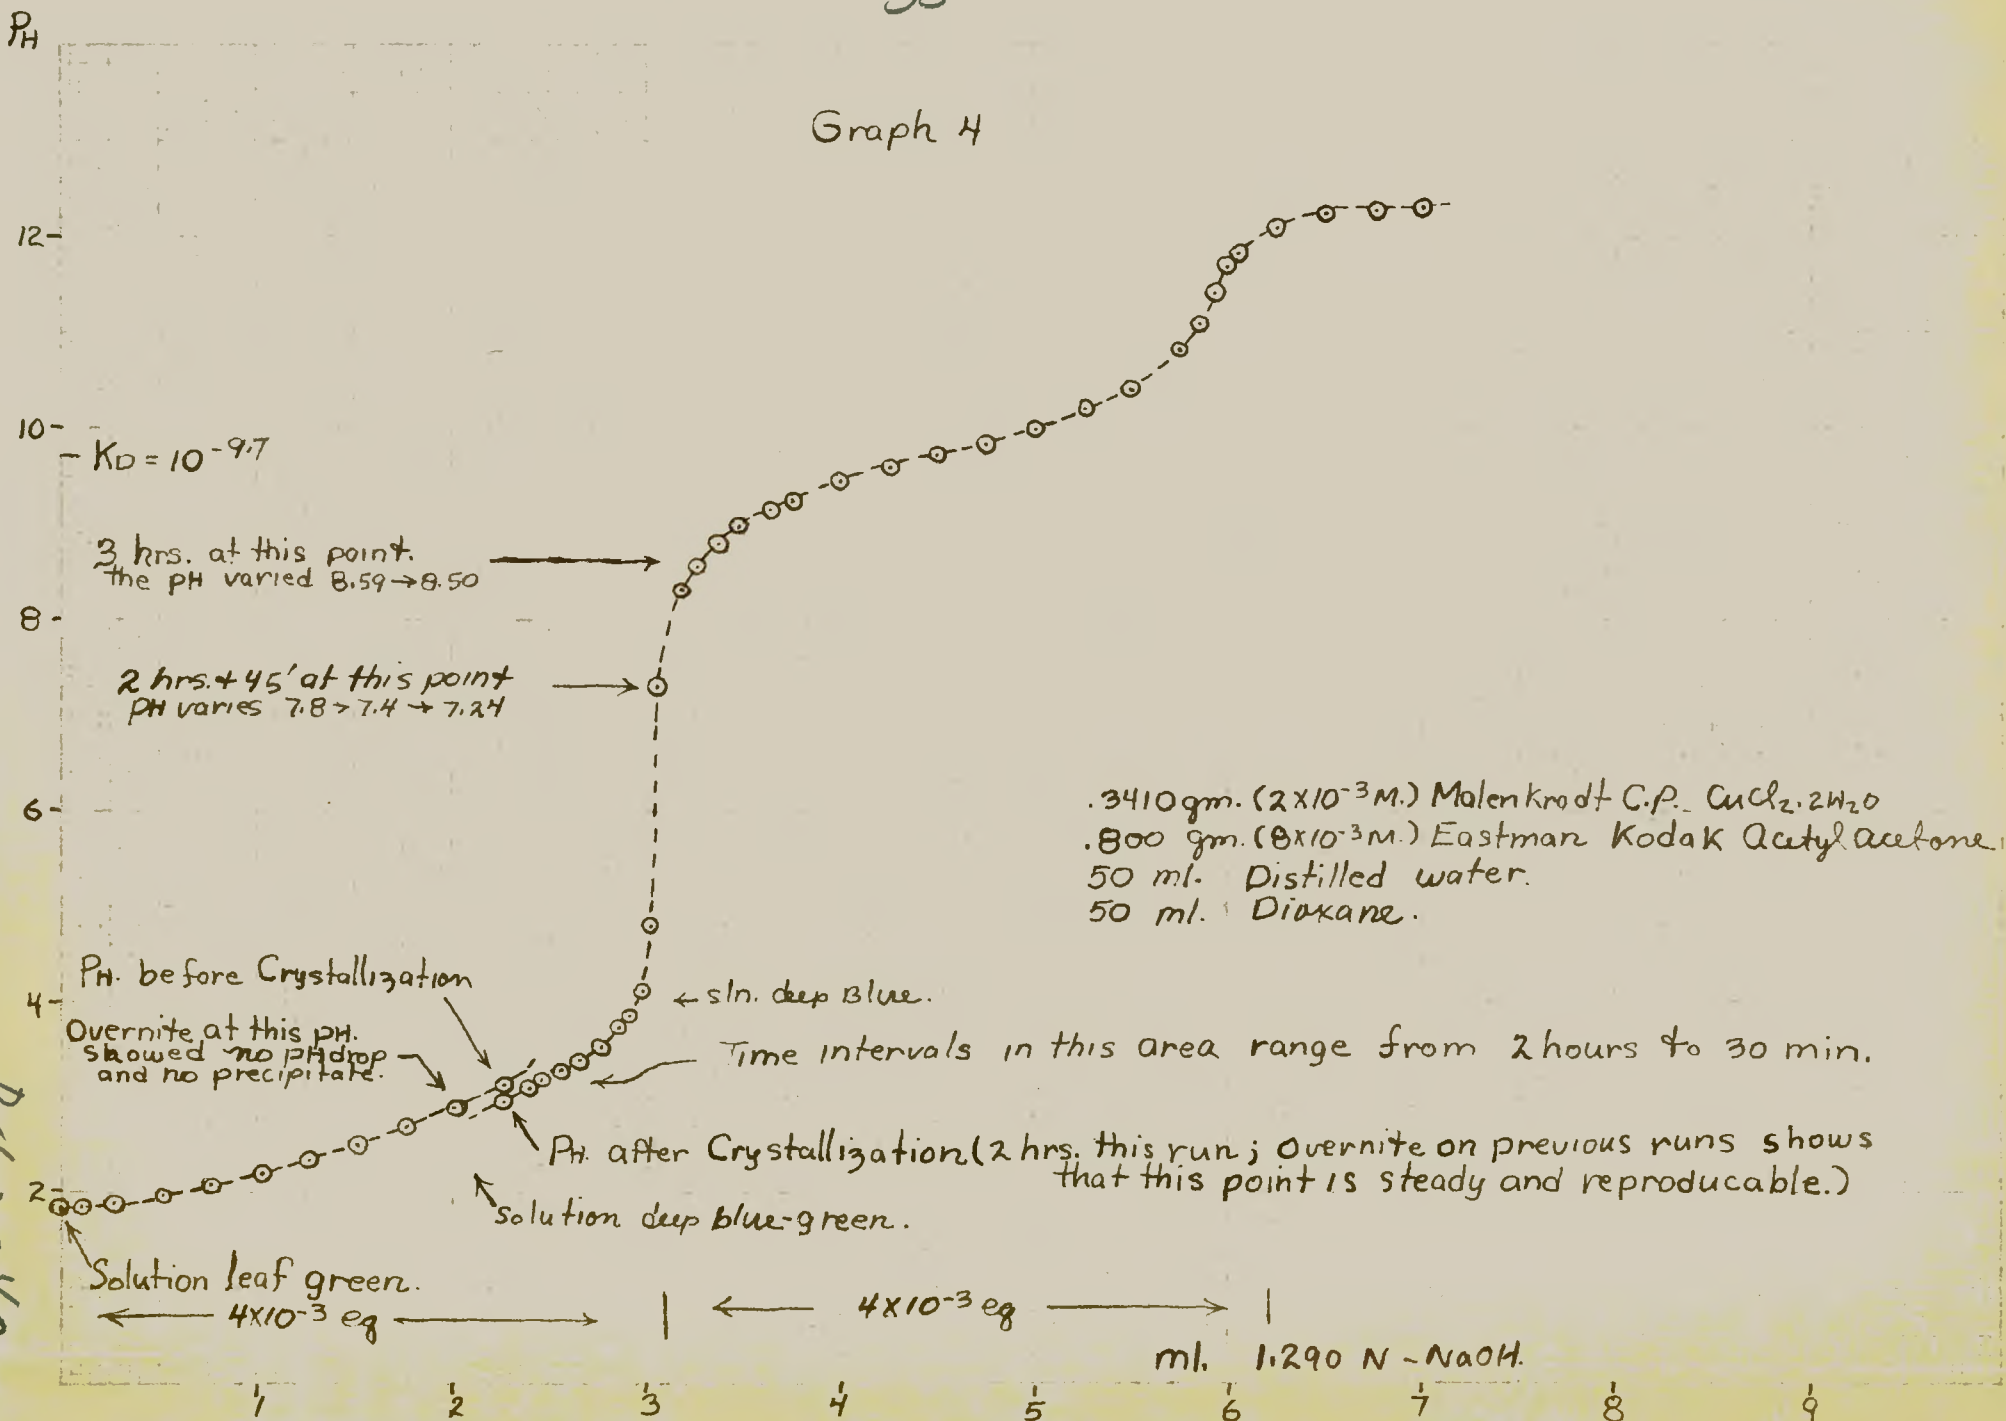 PH
Graph 4
12
10
KD = 10-9.7
3 hrs. at this point.
the pH varied 8.59→8.50
8
2 hrs.+45' at this point
pH varies 7.8→7.4→7.24
6
.3410gm. (2X10-3M.) Malenkrodt C.P. CuCl2.2H2O
.800 gm. (8X10-3M.) Eastman Kodak Acetyl acetone
50 ml. Distilled water.
50 ml. Dioxane.
PH. before Crystallization
4
← sln. deep Blue.
Overnite at this pH.
showed no pH drop
and no precipitate.
Time intervals in this area range from 2 hours to 30 min.
PH. after Crystallization (2 hrs. this run; Overnite on previous runs shows
that this point is steady and reproducable.)
2
Solution deep blue-green.
Solution leaf green.
4X10-3 eq
4X10-3 eq
ml. 1.290 N - NaOH.
1 2 3 4 5 6 7 8 9